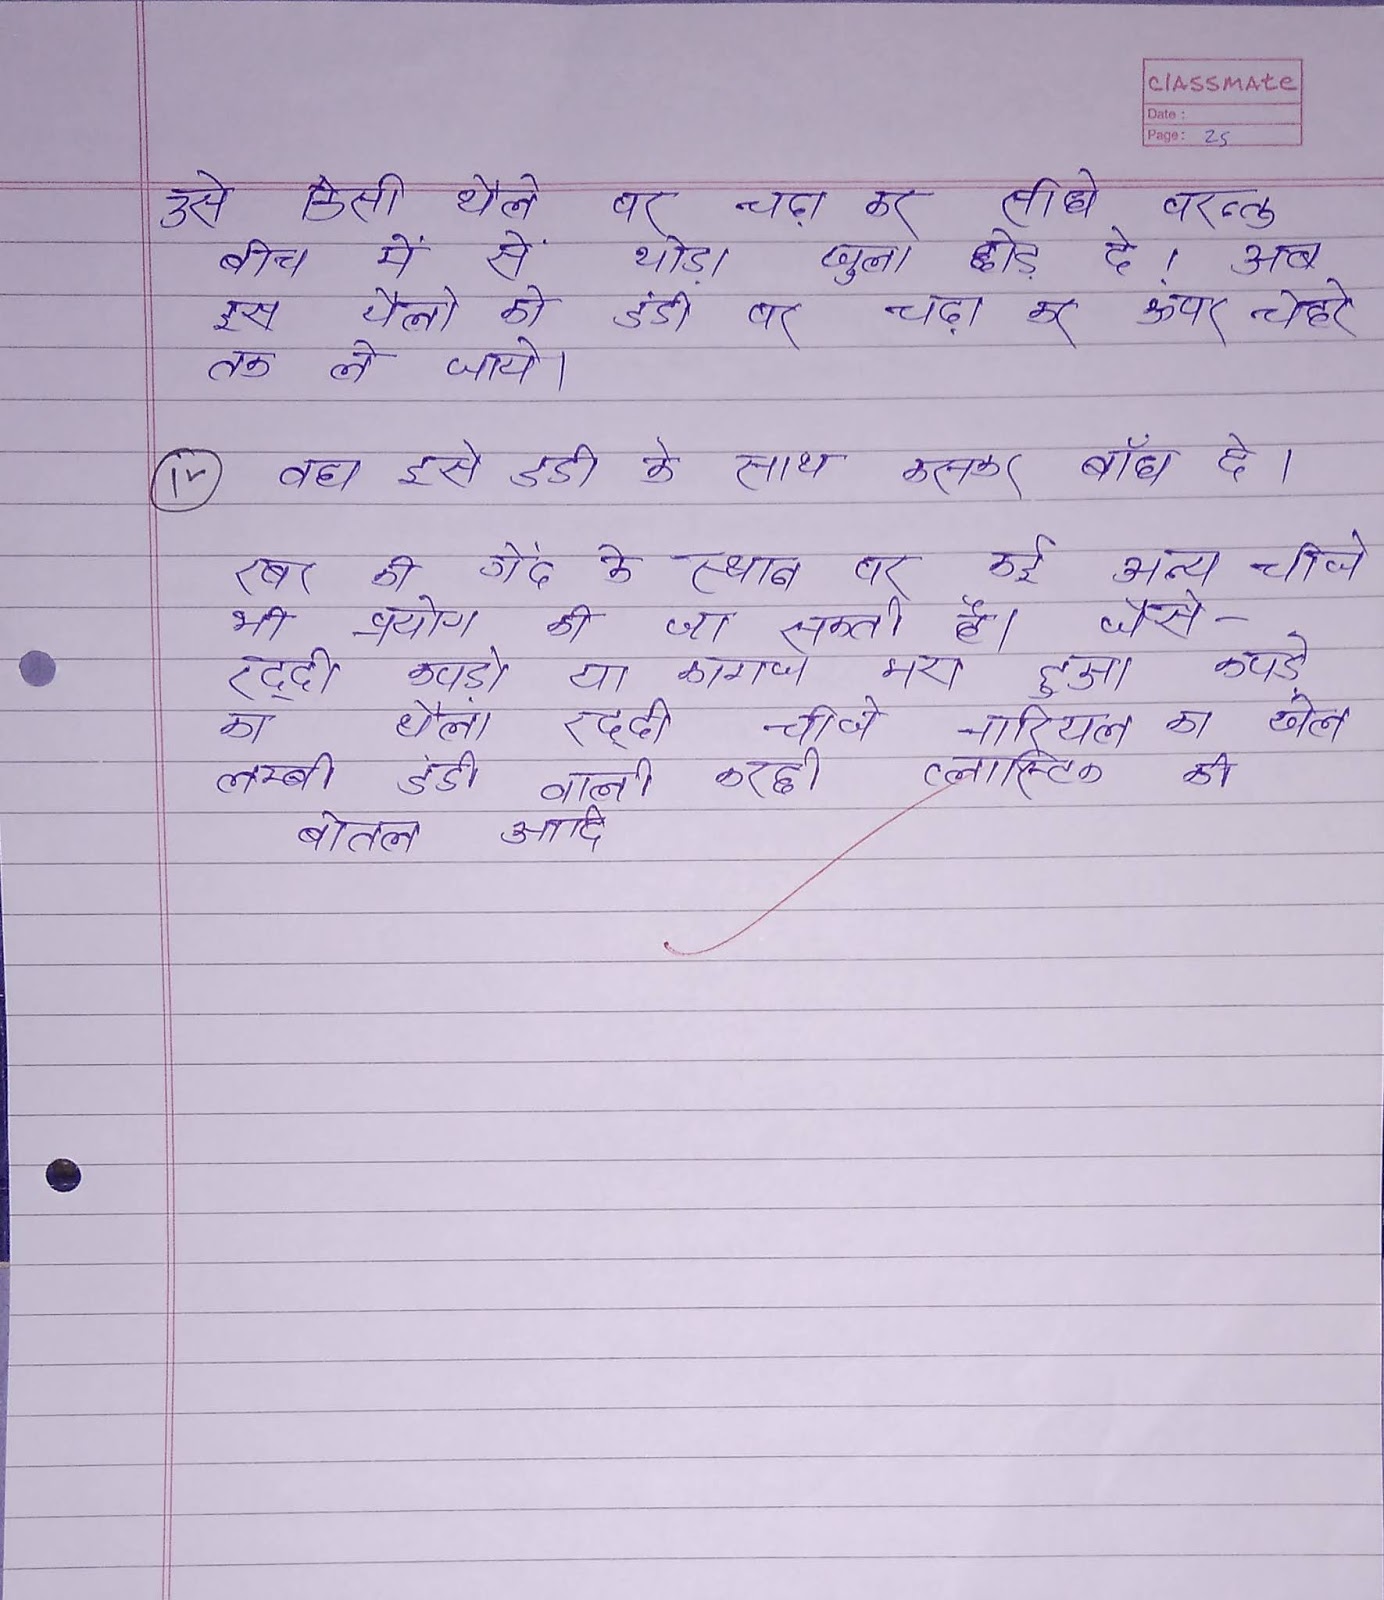 classmate
Date :
Page : 25
उसे किसी थैले पर चढ़ा कर सीधे परन्तु
बीच में से थोड़ा खुला छोड़ दे। अब
इस थैलो को डंडी पर चढ़ा कर ऊपर चेहरे
तक ले जाये।
iv वध इसे डडी के साथ कसकर बाँध दे।
रबर की गेंद के स्थान पर कई अन्य चीजे
भी प्रयोग की जा सकती है। जैसे -
रद्दी कपड़ो या कागज भरा हुआ कपड़े
का थैला रद्दी चीजे नारियल का खोल
लम्बी डंडी वाली करछी प्लास्टिक की
बोतल आदि